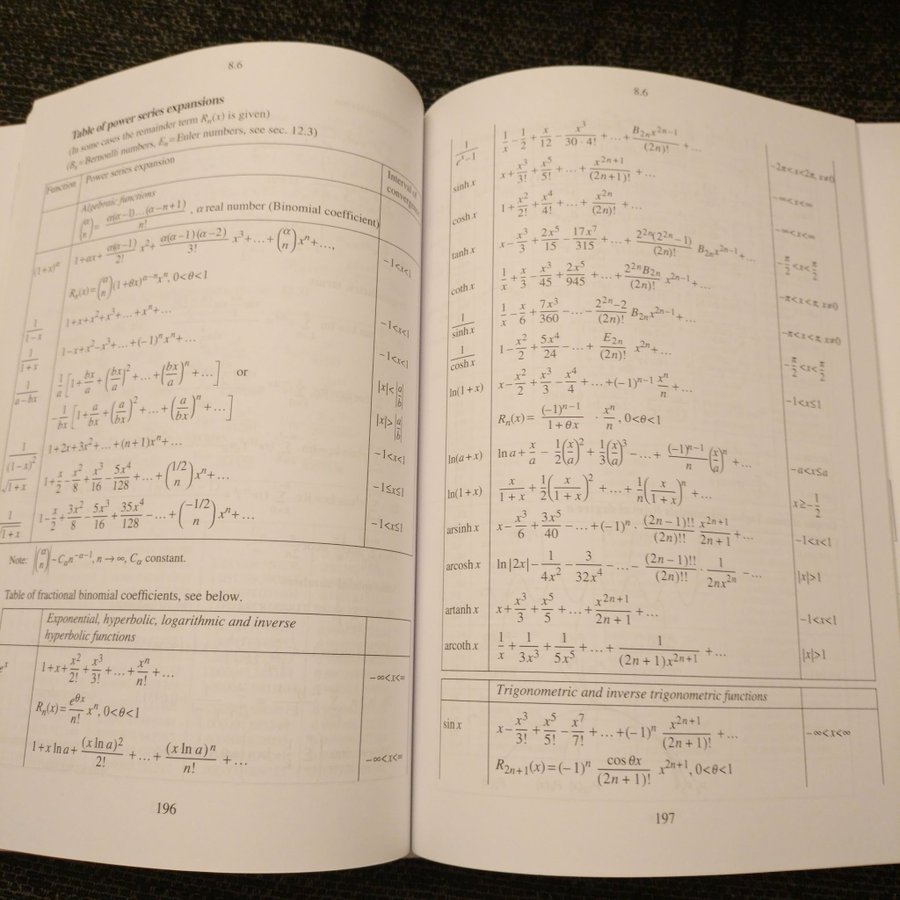 8.6
Table of power series expansions
(In some cases the remainder term Rₙ(x) is given)
(Bₙ=Bernoulli numbers, Eₙ=Euler numbers, see sec. 12.3)
Function | Power series expansion | Interval of convergence
Algebraic functions
(α n) = α(α−1)…(α−n+1)/n! , α real number (Binomial coefficient)
(1+x)^α | 1+αx+ α(α−1)/2! x²+ α(α−1)(α−2)/3! x³+…+(α n)xⁿ+…, | −1<x<1
Rₙ(x)=(α n)(1+θx)^(α−n)xⁿ, 0<θ<1
1/(1−x) | 1+x+x²+x³+…+xⁿ+… | −1<x<1
1/(1+x) | 1−x+x²−x³+…+(−1)ⁿxⁿ+… | −1<x<1
1/(a−bx) | 1/a [1+ bx/a +(bx/a)²+…+(bx/a)ⁿ+…] or | |x|<|a/b|
−1/bx [1+ a/bx +(a/bx)²+…+(a/bx)ⁿ+…] | |x|>|a/b|
1/(1−x)² | 1+2x+3x²+…+(n+1)xⁿ+… | −1<x<1
√(1+x) | 1+ x/2 − x²/8 + x³/16 − 5x⁴/128 +…+(1/2 n)xⁿ+… | −1≤x≤1
1/√(1+x) | 1− x/2 + 3x²/8 − 5x³/16 + 35x⁴/128 −…+(−1/2 n)xⁿ+… | −1<x≤1
Note: (α n) ~ C_α n^(−α−1), n→∞, C_α constant.
Table of fractional binomial coefficients, see below.
Exponential, hyperbolic, logarithmic and inverse
hyperbolic functions
eˣ | 1+x+ x²/2! + x³/3! +…+ xⁿ/n! +… | −∞<x<∞
Rₙ(x)= e^(θx)/n! xⁿ, 0<θ<1
1+x ln a+ (x ln a)²/2! +…+ (x ln a)ⁿ/n! +… | −∞<x<∞
196
8.6
1/(eˣ−1) | 1/x − 1/2 + x/12 − x³/(30·4!) +…+ B₂ₙx²ⁿ⁻¹/(2n)! +… | −2π<x<2π, x≠0
sinh x | x+ x³/3! + x⁵/5! +…+ x²ⁿ⁺¹/(2n+1)! +… | −∞<x<∞
cosh x | 1+ x²/2! + x⁴/4! +…+ x²ⁿ/(2n)! +… | −∞<x<∞
tanh x | x− x³/3 + 2x⁵/15 − 17x⁷/315 +…+ 2²ⁿ(2²ⁿ−1)/(2n)! B₂ₙx²ⁿ⁻¹+… | −π/2<x<π/2
coth x | 1/x + x/3 − x³/45 + 2x⁵/945 +…+ 2²ⁿB₂ₙ/(2n)! x²ⁿ⁻¹+… | −π<x<π, x≠0
1/sinh x | 1/x − x/6 + 7x³/360 −…− (2²ⁿ−2)/(2n)! B₂ₙx²ⁿ⁻¹+… | −π<x<π, x≠0
1/cosh x | 1− x²/2 + 5x⁴/24 −…+ E₂ₙ/(2n)! x²ⁿ+… | −π/2<x<π/2
ln(1+x) | x− x²/2 + x³/3 − x⁴/4 +…+(−1)ⁿ⁻¹ xⁿ/n +… | −1<x≤1
Rₙ(x)= (−1)ⁿ⁻¹/(1+θx) · xⁿ/n , 0<θ<1
ln(a+x) | ln a+ x/a − 1/2(x/a)²+ 1/3(x/a)³−…+ (−1)ⁿ⁻¹/n (x/a)ⁿ+… | −a<x≤a
ln(1+x) | x/(1+x) + 1/2(x/(1+x))²+…+ 1/n(x/(1+x))ⁿ+… | x≥−1/2
arsinh x | x− x³/6 + 3x⁵/40 −…+(−1)ⁿ· (2n−1)!!/(2n)!! x²ⁿ⁺¹/(2n+1) +… | −1<x<1
arcosh x | ln|2x|− 1/4x² − 3/32x⁴ −…− (2n−1)!!/(2n)!! · 1/2nx²ⁿ −… | |x|>1
artanh x | x+ x³/3 + x⁵/5 +…+ x²ⁿ⁺¹/(2n+1) +… | −1<x<1
arcoth x | 1/x + 1/3x³ + 1/5x⁵ +…+ 1/((2n+1)x²ⁿ⁺¹) +… | |x|>1
Trigonometric and inverse trigonometric functions
sin x | x− x³/3! + x⁵/5! − x⁷/7! +…+(−1)ⁿ x²ⁿ⁺¹/(2n+1)! +… | −∞<x<∞
R₂ₙ₊₁(x)=(−1)ⁿ cos θx/(2n+1)! x²ⁿ⁺¹, 0<θ<1
197